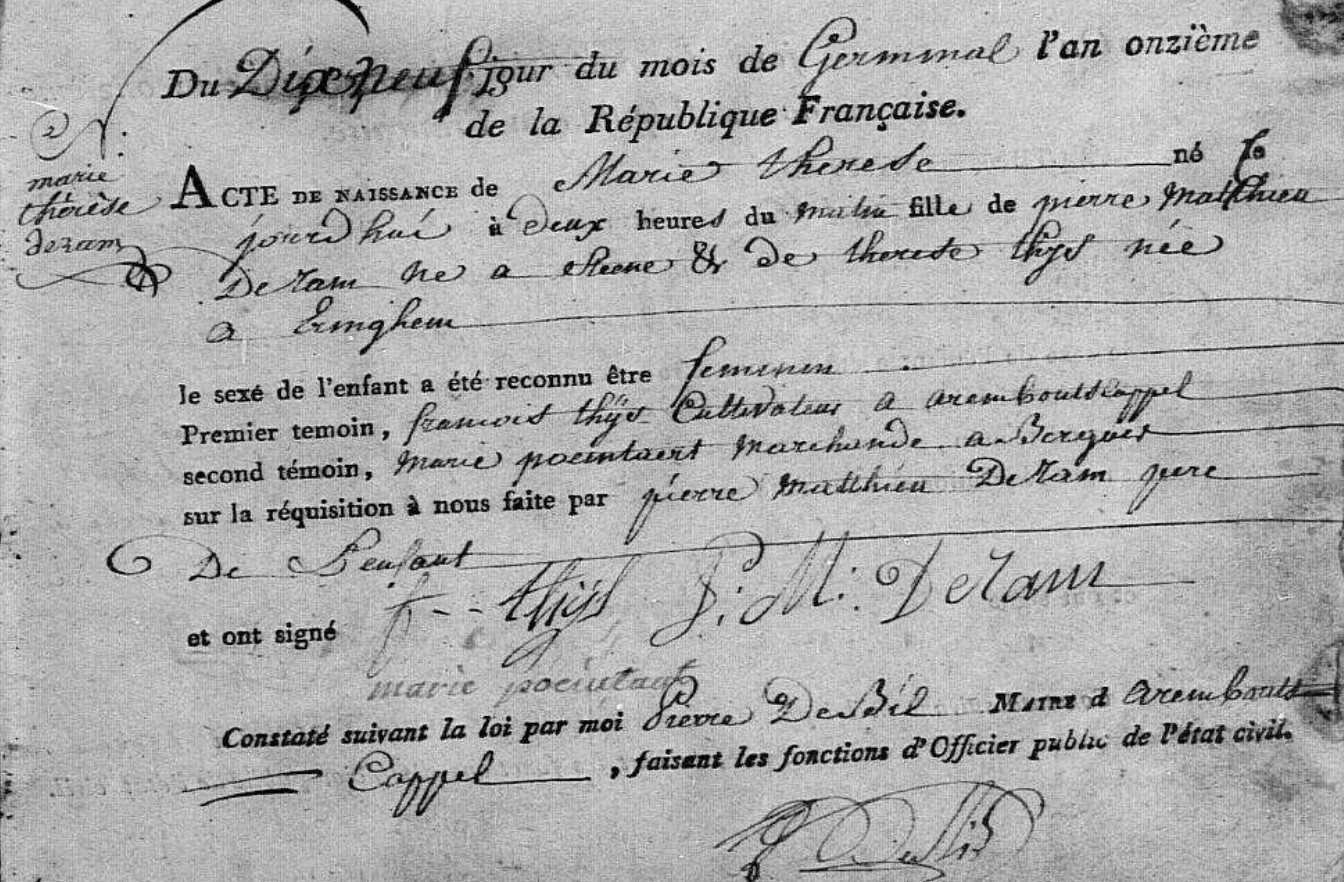 Du Dix neuf jour du mois de Germinal l'an onzième
de la République Française.
N.
marie
thérèse
dezam
ACTE DE NAISSANCE de Marie therese né le
jourdhui à deux heures du matin fille de pierre Matthieu
Dezam ne a steene & de therese thijs née
a Eringhem
le sexe de l'enfant a été reconnu être feminin
Premier temoin, francois thijs Cultivateur a arembouts cappel
second témoin, Marie pocintaert Marchande a Bergues
sur la réquisition à nous faite par pierre Matthieu Dezam pere
De L'enfant
et ont signé f-- thijs P: M: Dezam
marie pocintaert
Constaté suivant la loi par moi Pierre DeBil MAIRE d arembouts
Cappel, faisant les fonctions d'Officier public de l'état civil.